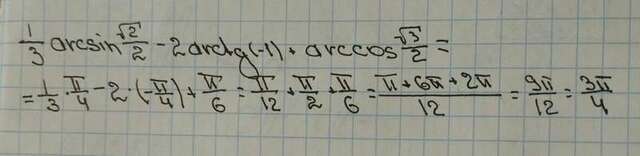 1/3 arcsin √2/2 - 2arctg(-1) + arccos √3/2 =
= 1/3 · π/4 - 2 · (-π/4) + π/6 = π/12 + π/2 + π/6 = (π + 6π + 2π)/12 = 9π/12 = 3π/4